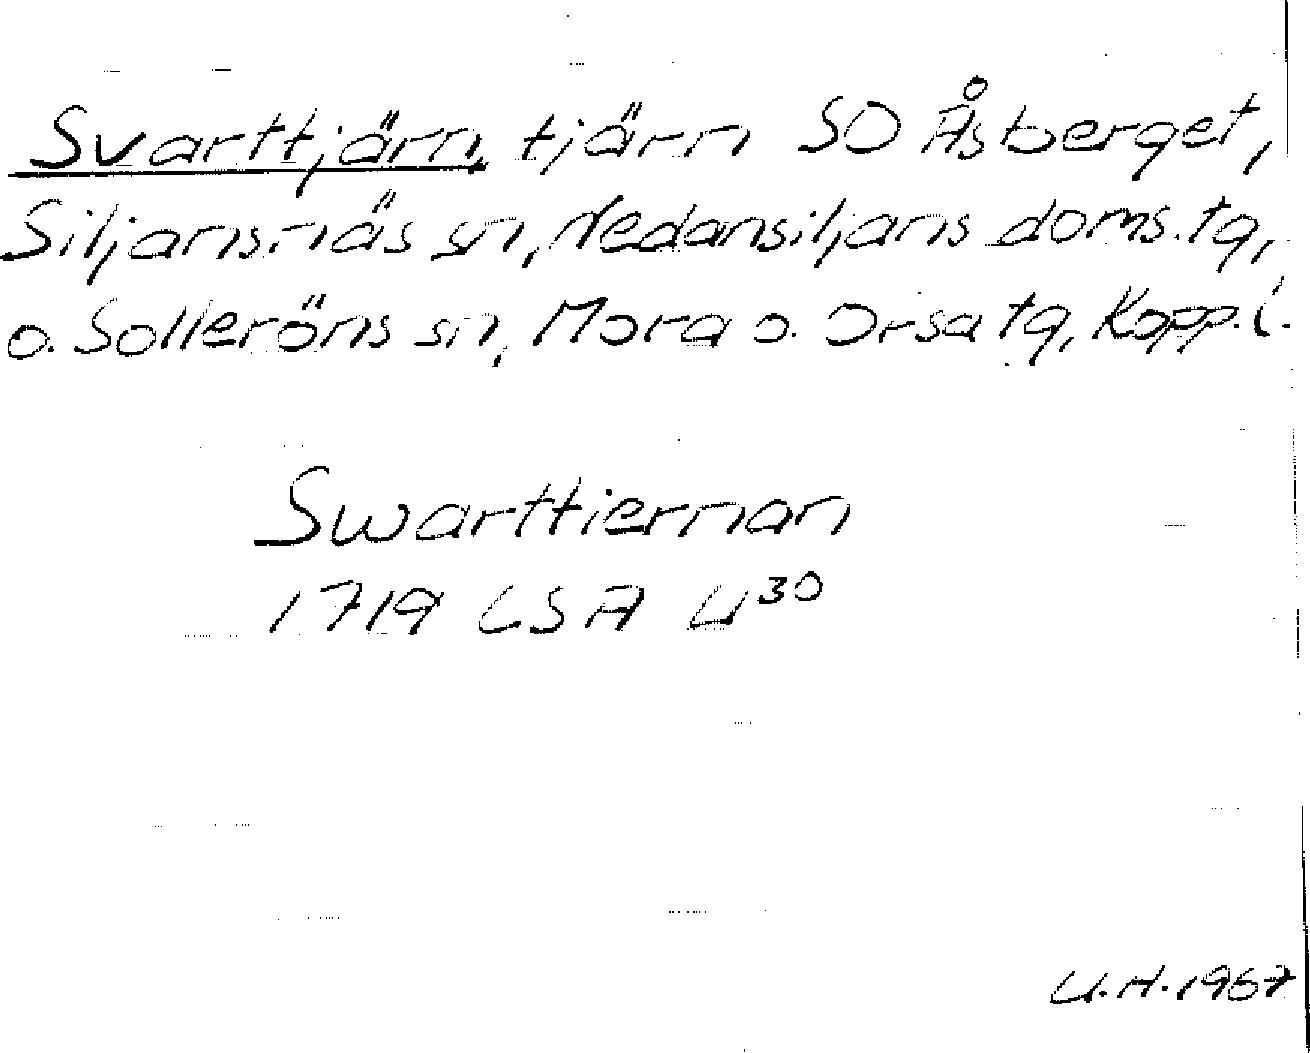 Svarttjärn, tjärn SO Åsberget,
Siljansnäs sn, Nedansiljans doms. tg,
o. Solleröns sn, Mora o. Orsa tg, Kopp. l.
Swarttiernan
1719 LSA U³⁰
U.H. 1967